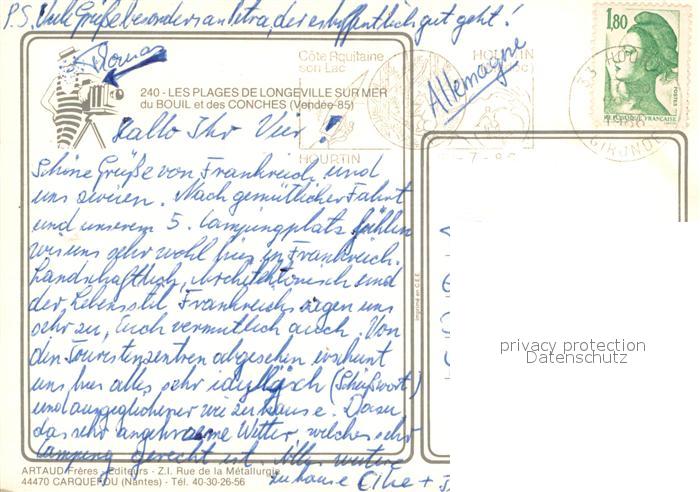 P.S. Viele Grüße besonders an Petra, der es hoffentlich gut geht!
Thomas
Côte Aquitaine
son Lac
HOURTIN
Allemagne
1,80
POSTES
REPUBLIQUE FRANÇAISE
33 HOURTIN
GIRONDE
240 - LES PLAGES DE LONGEVILLE SUR MER
du BOUIL et des CONCHES (Vendée-85)
HOURTIN
-7-86
Hallo Ihr Vier!
Schöne Grüße von Frankreich und
uns zweien. Nach gemütlicher Fahrt
und unserem 5. Campingplatz fühlen
wir uns sehr wohl hier in Frankreich.
Landschaftlich, Architektonisch und
der Lebensstil Frankreichs sagen uns
sehr zu, Euch vermutlich auch. Von
den Touristenzentren abgesehen erscheint
uns hier alles sehr idyllisch (Scheißwort)
und ausgeglichener wie zuhause. Dazu
das sehr angenehme Wetter, welches sehr
Camping gerecht ist. Alles weitere
zuhause
Imprimé en C.E.E.
ARTAUD Frères - Editeurs - Z.I. Rue de la Métallurgie
44470 CARQUEFOU (Nantes) - Tél. 40-30-26-56
privacy protection
Datenschutz